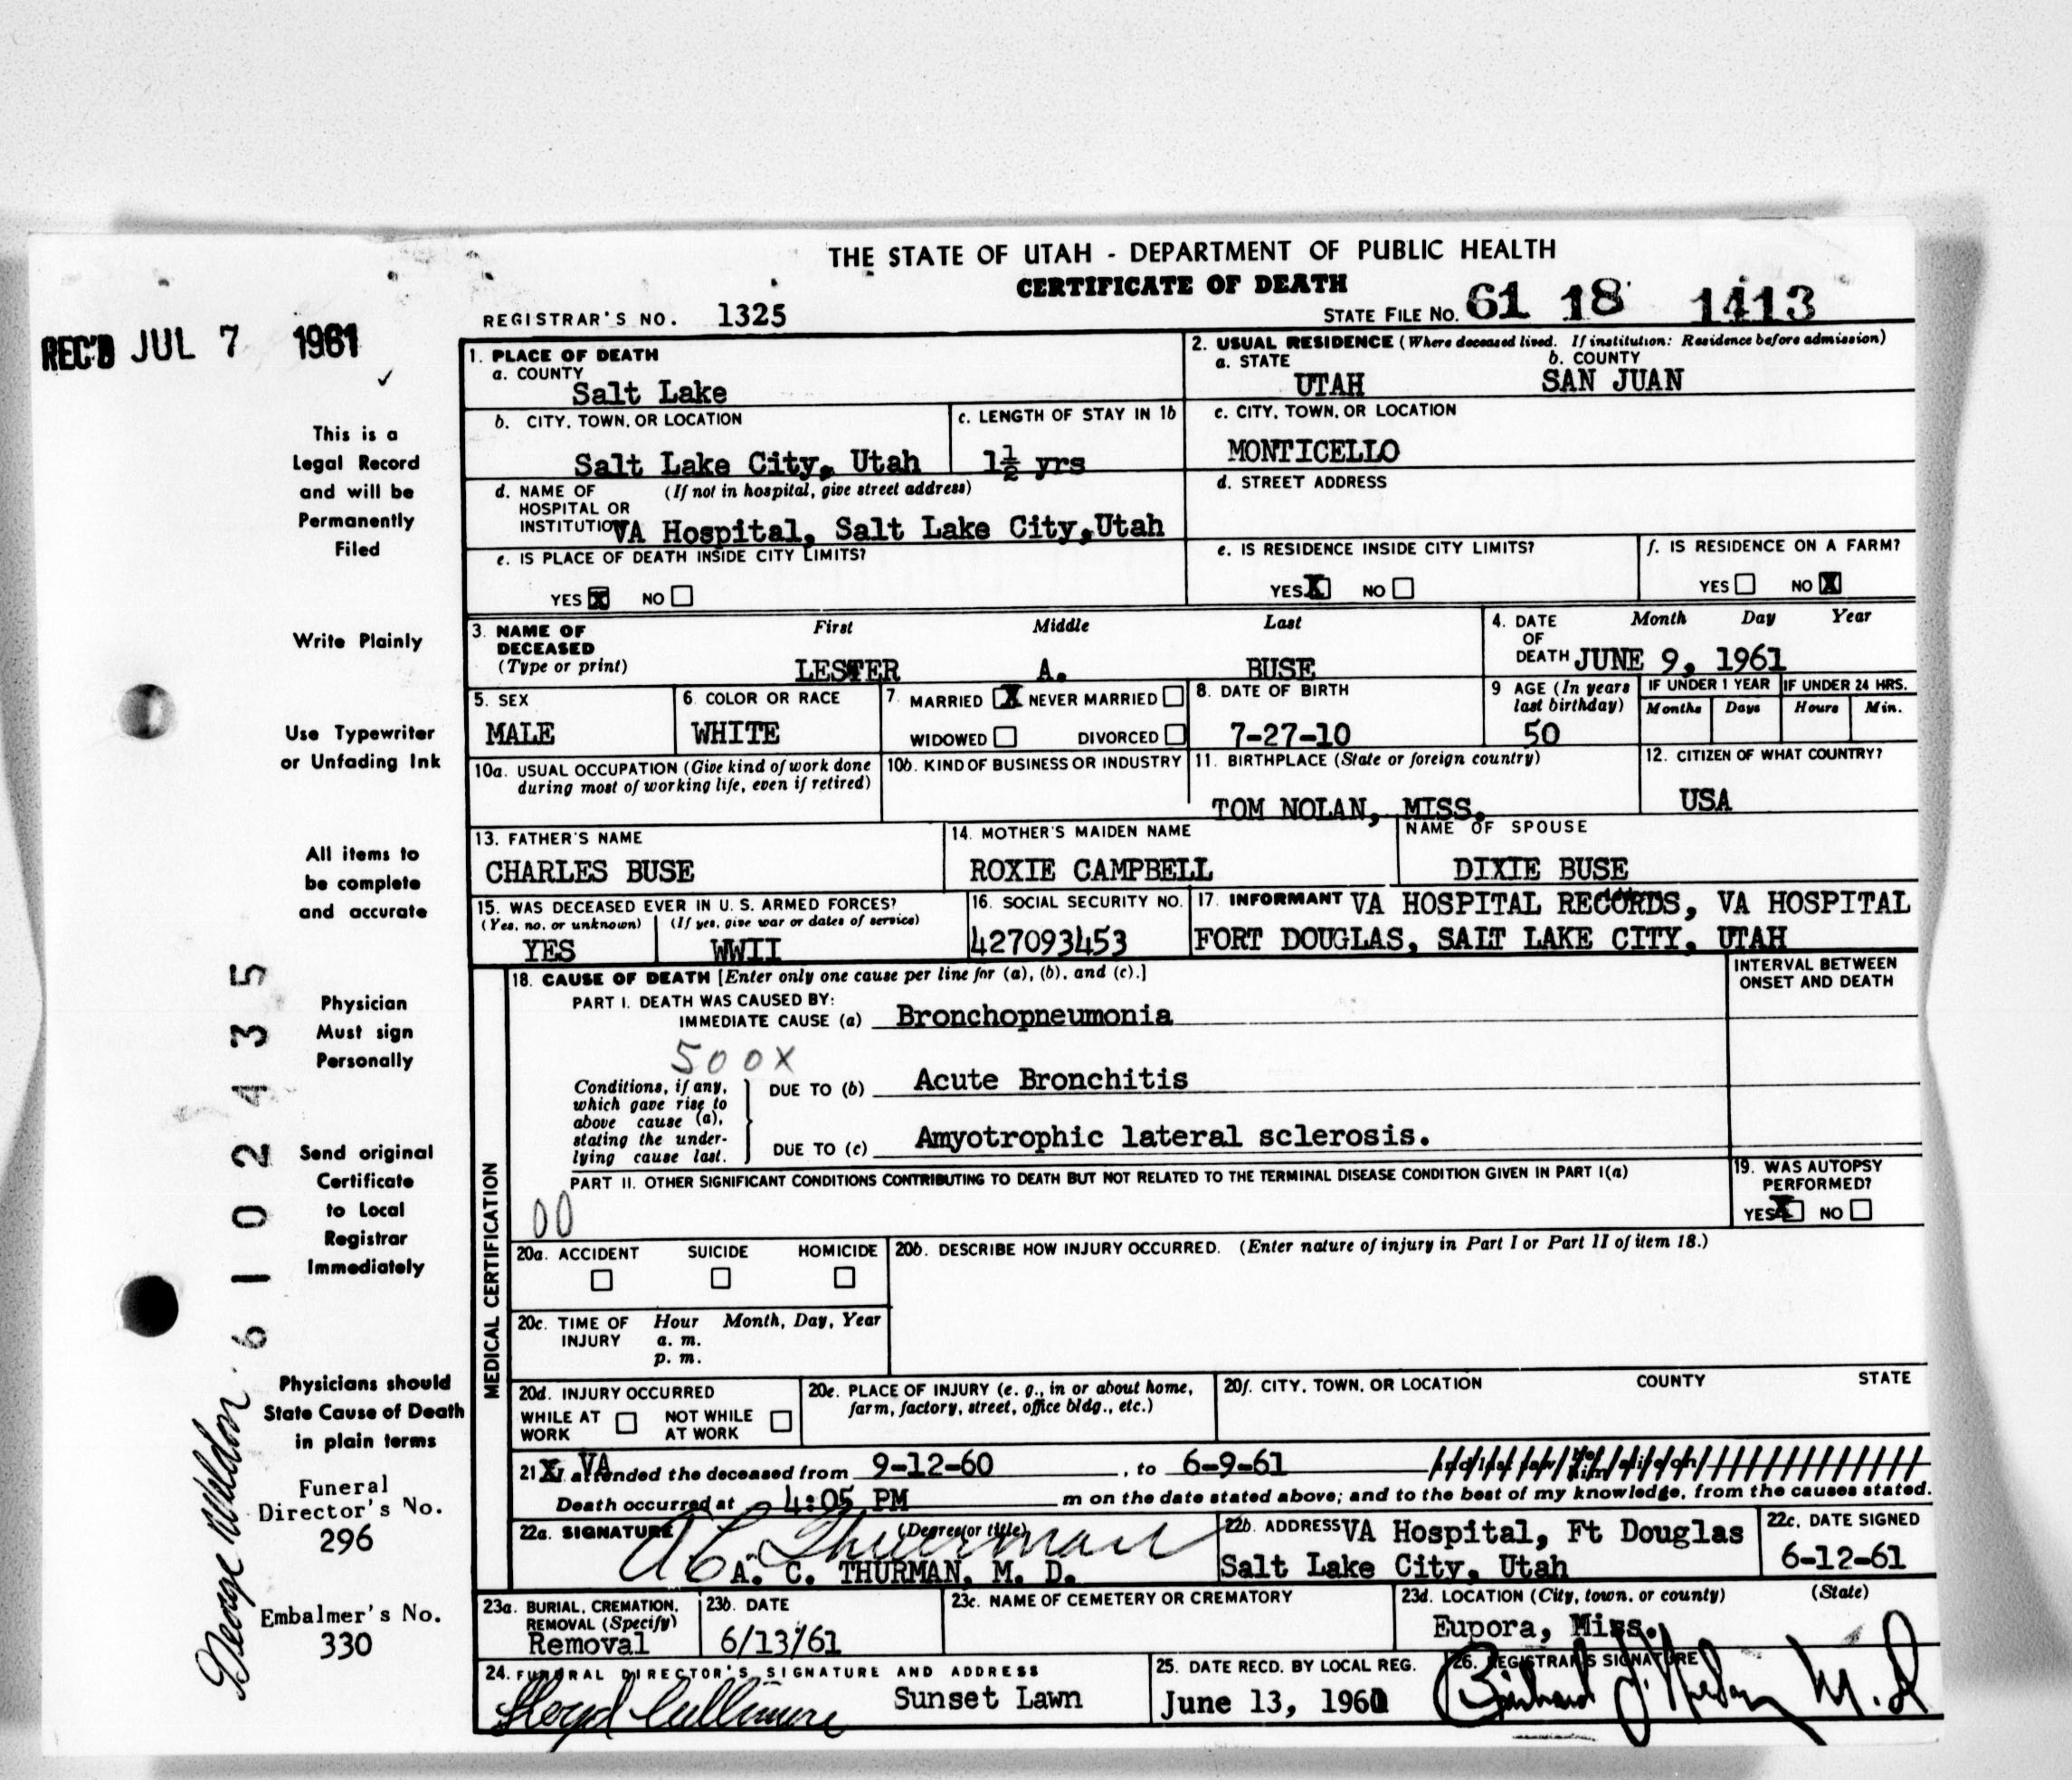 THE STATE OF UTAH - DEPARTMENT OF PUBLIC HEALTH
CERTIFICATE OF DEATH
REGISTRAR'S NO. 1325
STATE FILE NO. 61 18 1413
REC'D JUL 7 1961
This is a
Legal Record
and will be
Permanently
Filed
Write Plainly
Use Typewriter
or Unfading Ink
All items to
be complete
and accurate
Physician
Must sign
Personally
Send original
Certificate
to Local
Registrar
Immediately
Physicians should
State Cause of Death
in plain terms
Funeral
Director's No.
296
Embalmer's No.
330
George Weldon
6102435
1. PLACE OF DEATH
a. COUNTY
Salt Lake
b. CITY, TOWN, OR LOCATION
Salt Lake City, Utah
c. LENGTH OF STAY IN 1b
1½ yrs
d. NAME OF (If not in hospital, give street address)
HOSPITAL OR
INSTITUTION VA Hospital, Salt Lake City, Utah
e. IS PLACE OF DEATH INSIDE CITY LIMITS?
YES X NO
2. USUAL RESIDENCE (Where deceased lived. If institution: Residence before admission)
a. STATE b. COUNTY
UTAH SAN JUAN
c. CITY, TOWN, OR LOCATION
MONTICELLO
d. STREET ADDRESS
e. IS RESIDENCE INSIDE CITY LIMITS?
YES X NO
f. IS RESIDENCE ON A FARM?
YES NO X
3. NAME OF DECEASED (Type or print) First Middle Last
LESTER A. BUSE
4. DATE OF DEATH Month Day Year
JUNE 9, 1961
5. SEX
MALE
6. COLOR OR RACE
WHITE
7. MARRIED X NEVER MARRIED
WIDOWED DIVORCED
8. DATE OF BIRTH
7-27-10
9 AGE (In years last birthday)
50
IF UNDER 1 YEAR IF UNDER 24 HRS.
Months Days Hours Min.
10a. USUAL OCCUPATION (Give kind of work done
during most of working life, even if retired)
10b. KIND OF BUSINESS OR INDUSTRY
11. BIRTHPLACE (State or foreign country)
TOM NOLAN, MISS.
12. CITIZEN OF WHAT COUNTRY?
USA
13. FATHER'S NAME
CHARLES BUSE
14. MOTHER'S MAIDEN NAME
ROXIE CAMPBELL
NAME OF SPOUSE
DIXIE BUSE
15. WAS DECEASED EVER IN U. S. ARMED FORCES?
(Yes, no, or unknown) (If yes, give war or dates of service)
YES WWII
16. SOCIAL SECURITY NO.
427093453
17. INFORMANT VA HOSPITAL RECORDS, VA HOSPITAL
FORT DOUGLAS, SALT LAKE CITY, UTAH
MEDICAL CERTIFICATION
18. CAUSE OF DEATH [Enter only one cause per line for (a), (b), and (c).]
INTERVAL BETWEEN
ONSET AND DEATH
PART I. DEATH WAS CAUSED BY:
IMMEDIATE CAUSE (a) Bronchopneumonia
500X
Conditions, if any,
which gave rise to
above cause (a),
stating the under-
lying cause last.
DUE TO (b) Acute Bronchitis
DUE TO (c) Amyotrophic lateral sclerosis.
PART II. OTHER SIGNIFICANT CONDITIONS CONTRIBUTING TO DEATH BUT NOT RELATED TO THE TERMINAL DISEASE CONDITION GIVEN IN PART I(a)
00
19. WAS AUTOPSY
PERFORMED?
YES X NO
20a. ACCIDENT SUICIDE HOMICIDE
20b. DESCRIBE HOW INJURY OCCURRED. (Enter nature of injury in Part I or Part II of item 18.)
20c. TIME OF INJURY Hour Month, Day, Year
a. m.
p. m.
20d. INJURY OCCURRED
WHILE AT WORK NOT WHILE AT WORK
20e. PLACE OF INJURY (e. g., in or about home,
farm, factory, street, office bldg., etc.)
20f. CITY, TOWN, OR LOCATION COUNTY STATE
21 X VA attended the deceased from 9-12-60, to 6-9-61
Death occurred at 4:05 PM m on the date stated above; and to the best of my knowledge, from the causes stated.
22a. SIGNATURE (Degree or title)
A C Thurman
A. C. THURMAN, M. D.
22b. ADDRESS VA Hospital, Ft Douglas
Salt Lake City, Utah
22c. DATE SIGNED
6-12-61
23a. BURIAL, CREMATION,
REMOVAL (Specify)
Removal
23b. DATE
6/13/61
23c. NAME OF CEMETERY OR CREMATORY
23d. LOCATION (City, town, or county) (State)
Eupora, Miss.
24. FUNERAL DIRECTOR'S SIGNATURE AND ADDRESS
Lloyd Cullimore Sunset Lawn
25. DATE RECD. BY LOCAL REG.
June 13, 1960
26. REGISTRAR'S SIGNATURE
M.D